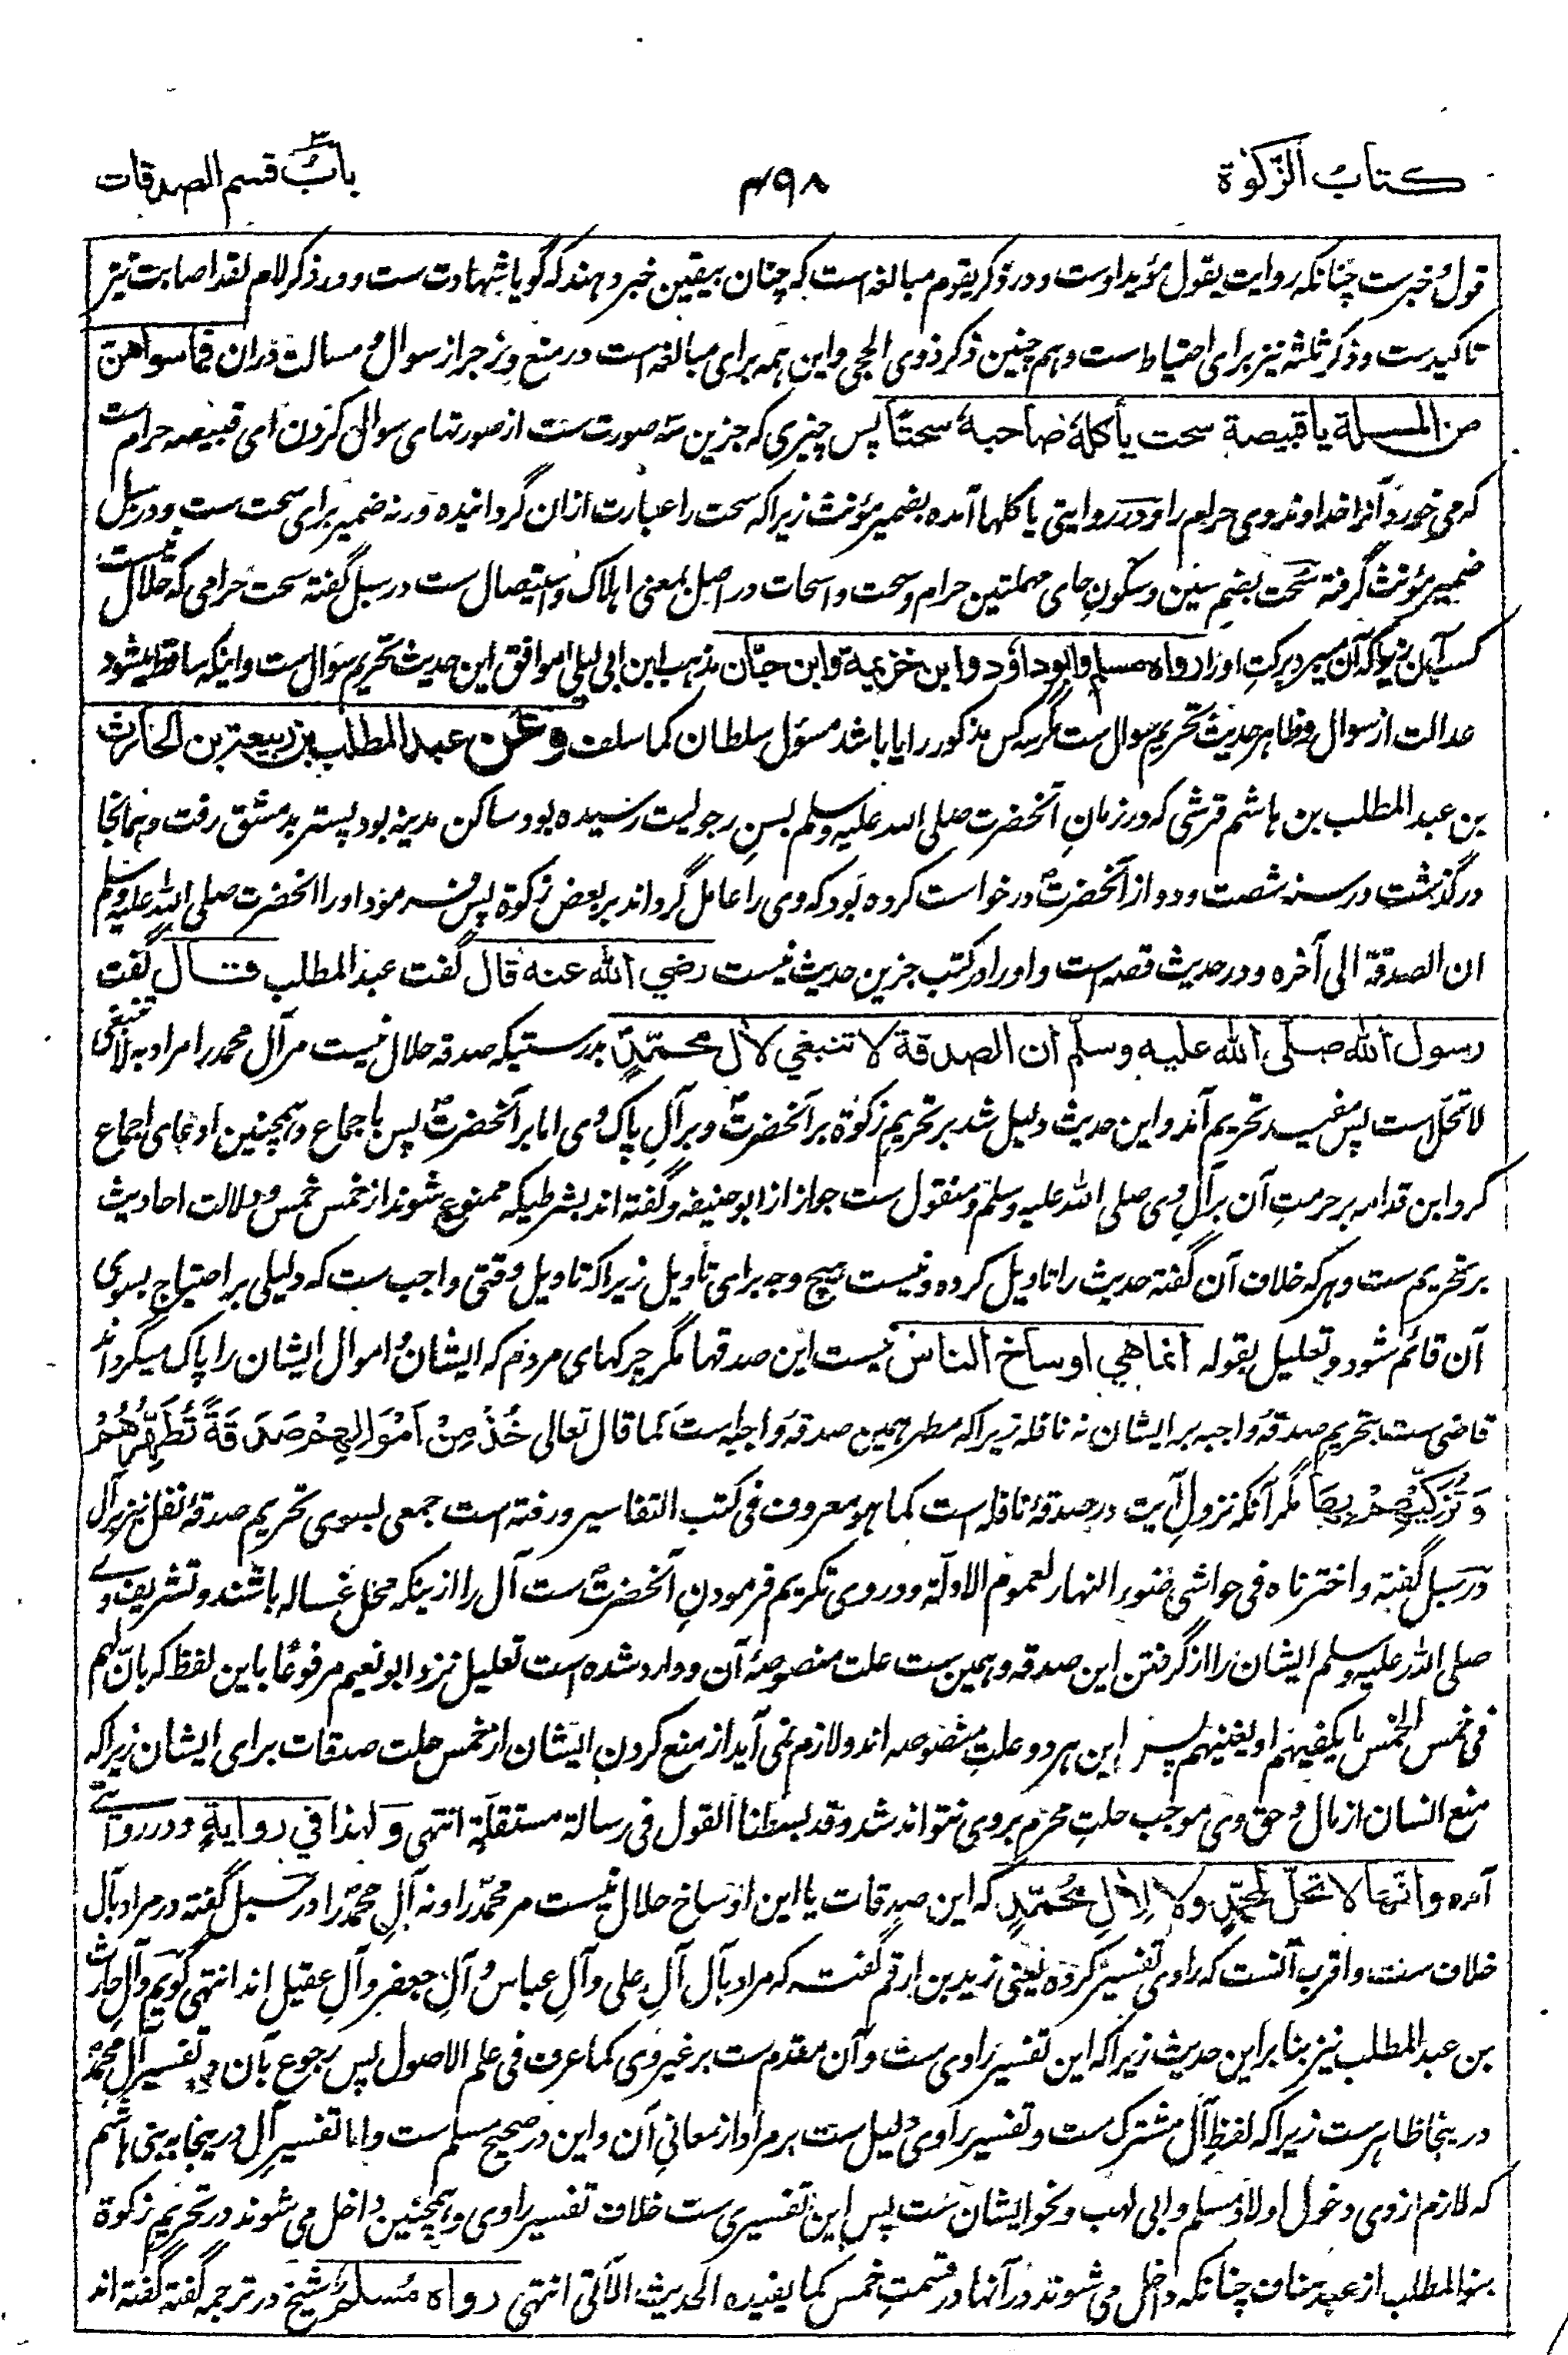 كتاب الزكوة
۴۹۸
باب قسم الصدقات
قول مخبرست چنانکه روایت یقول مؤید اوست و در ذکر یقوم مبالغه است که چنان بیقین خبر دهند که گویا شهادت ست و در ذکر لام لقد اصابت نیز
تاکیدست و ذکر ثلثه نیز برای احتیاط ست و هم چنین ذکر ذوی الحجی و این همه برای مبالغه است در منع و زجر از سوال و مسالت دران فما سواهن
من المسئلة یا قبیصة سحت یأکلها صاحبها سحتا پس چیزی که جزین سه صورت ست از صورتهای سوال کردن ای قبیصه حرام ست
که می خورد آنرا خداوند وی حرام را و در روایتی یاکلها آمده بضمیر مؤنث زیرا که سحت را عبارت ازان گردانیده ورنه ضمیر برای سحت ست و در سبل
ضمیر مؤنث گرفته سحت بضم سین و سکون حای مهملتین حرام و سحت و اسحات در اصل بمعنی اهلاک و استیصال ست در سبل گفته سحت حرامی که حلال نیست
کسب آن زیرا که آن میبرد برکت او را رواه مسلم وابو داؤد وابن خزیمة وابن حبان مذهب ابن ابی لیلی موافق این حدیث تحریم سوال ست و اینکه ساقط میشود
عدالت از سوال و ظاهر حدیث تحریم سوال ست مگر سه کس مذکور را یا باشد مسئول سلطان کما سلف وعن عبد المطلب بن ربیعة بن الحارث
بن عبد المطلب بن هاشم قرشی که در زمان آنحضرت صلی الله علیه وسلم بسن رجولیت رسیده بود ساکن مدینه بود پستر بدمشق رفت و همانجا
درگذشت در سنه شصت و دو از آنحضرت درخواست کرده بود که وی را عامل گرداند بر بعض زکوة پس فرمود او را آنحضرت صلی الله علیه وسلم
ان الصدقة الی آخره و در حدیث قصه است و او را در کتب جزین حدیث نیست رضي الله عنه قال گفت عبد المطلب قال گفت
رسول الله صلى الله عليه وسلم ان الصدقة لا تنبغي لال محمد بدرستیکه صدقه حلال نیست مر آل محمد را مراد به لا تنبغی
لا تحل است پس مفید تحریم آمد و این حدیث دلیل شد بر تحریم زکوة بر آنحضرت و بر آل پاک وی اما بر آنحضرت پس باجماع و همچنین ادعای اجماع
کرد ابن قدامه بر حرمت آن بر آل وی صلی الله علیه وسلم و منقول ست جواز از ابو حنیفه و گفته اند بشرطیکه ممنوع شوند از خمس خمس و دلالت احادیث
بر تحریم ست و هر که خلاف آن گفته حدیث را تاویل کرده و نیست هیچ وجه برای تاویل زیرا که تاویل وقتی واجب ست که دلیلی بر احتیاج بسوی
آن قائم شود و تعلیل بقوله انما هي اوساخ الناس نیست این صدقها مگر چرکهای مردم که ایشان و اموال ایشان را پاک میگرداند
قاضی ست بتحریم صدقه واجبه بر ایشان نه نافله زیرا که مطهر همین صدقه واجبه است کما قال تعالی خُذْ مِنْ اَمْوَالِهِمْ صَدَقَةً تُطَهِّرُهُمْ
وَتُزَكِّيْهِمْ بِهَا مگر آنکه نزول آیت در صدقه نافله است کما هو معروف فی کتب التفاسیر و رفته است جمعی بسوی تحریم صدقه نفل نیز بر آل
در سبل گفته و اخترناه فی حواشی ضوء النهار لعموم الادلة و در وی تکریم فرمودن آنحضرت ست آل را ازینکه محل غساله باشند و تشریف وے
صلی الله علیه وسلم ایشان را از گرفتن این صدقه و همین ست علت منصوصه آن و وارد شده است تعلیل نزد ابو نعیم مرفوعا باین لفظ که بان لهم
فی خمس الخمس ما یکفیهم او یغنیهم پس این هر دو علت منصوصه اند و لازم نمی آید از منع کردن ایشان از خمس حلت صدقات برای ایشان زیرا که
منع انسان از مال و حق وی موجب حلت محرم بر وی نتواند شد و قد بسطنا القول فی رسالة مستقلة انتهی و لهذا في رواية و در روایتے
آمده وانها لا تحل لمحمد ولا لال محمد که این صدقات یا این اوساخ حلال نیست مر محمد را و نه آل محمد را در سبل گفته در مراد بآل
خلاف ست و اقرب آنست که راوی تفسیر کرده یعنی زید بن ارقم گفت که مراد بآل آل علی و آل عباس و آل جعفر و آل عقیل اند انتهی گویم و آل حارث
بن عبد المطلب نیز بنا بر این حدیث زیرا که این تفسیر راوی ست و آن مقدم ست بر غیر وی کما عرف فی علم الاصول پس رجوع بآن در تفسیر آل محمد
درینجا ظاهر ست زیرا که لفظ آل مشترک ست و تفسیر راوی دلیل ست بر مراد از معانی آن و این در صحیح مسلم ست و اما تفسیر آل درینجا به بنی هاشم
که لازم از وی دخول اولاد مسلم و ابی لهب و نحو ایشان ست پس این تفسیری ست خلاف تفسیر راوی و همچنین داخل می شوند در تحریم زکوة
بنو المطلب از عبد مناف چنانکه داخل می شوند در آنها در قسمت خمس کما یفیده الحدیث الآتی انتهی رواه مسلم شیخ در ترجمه گفته گفته اند